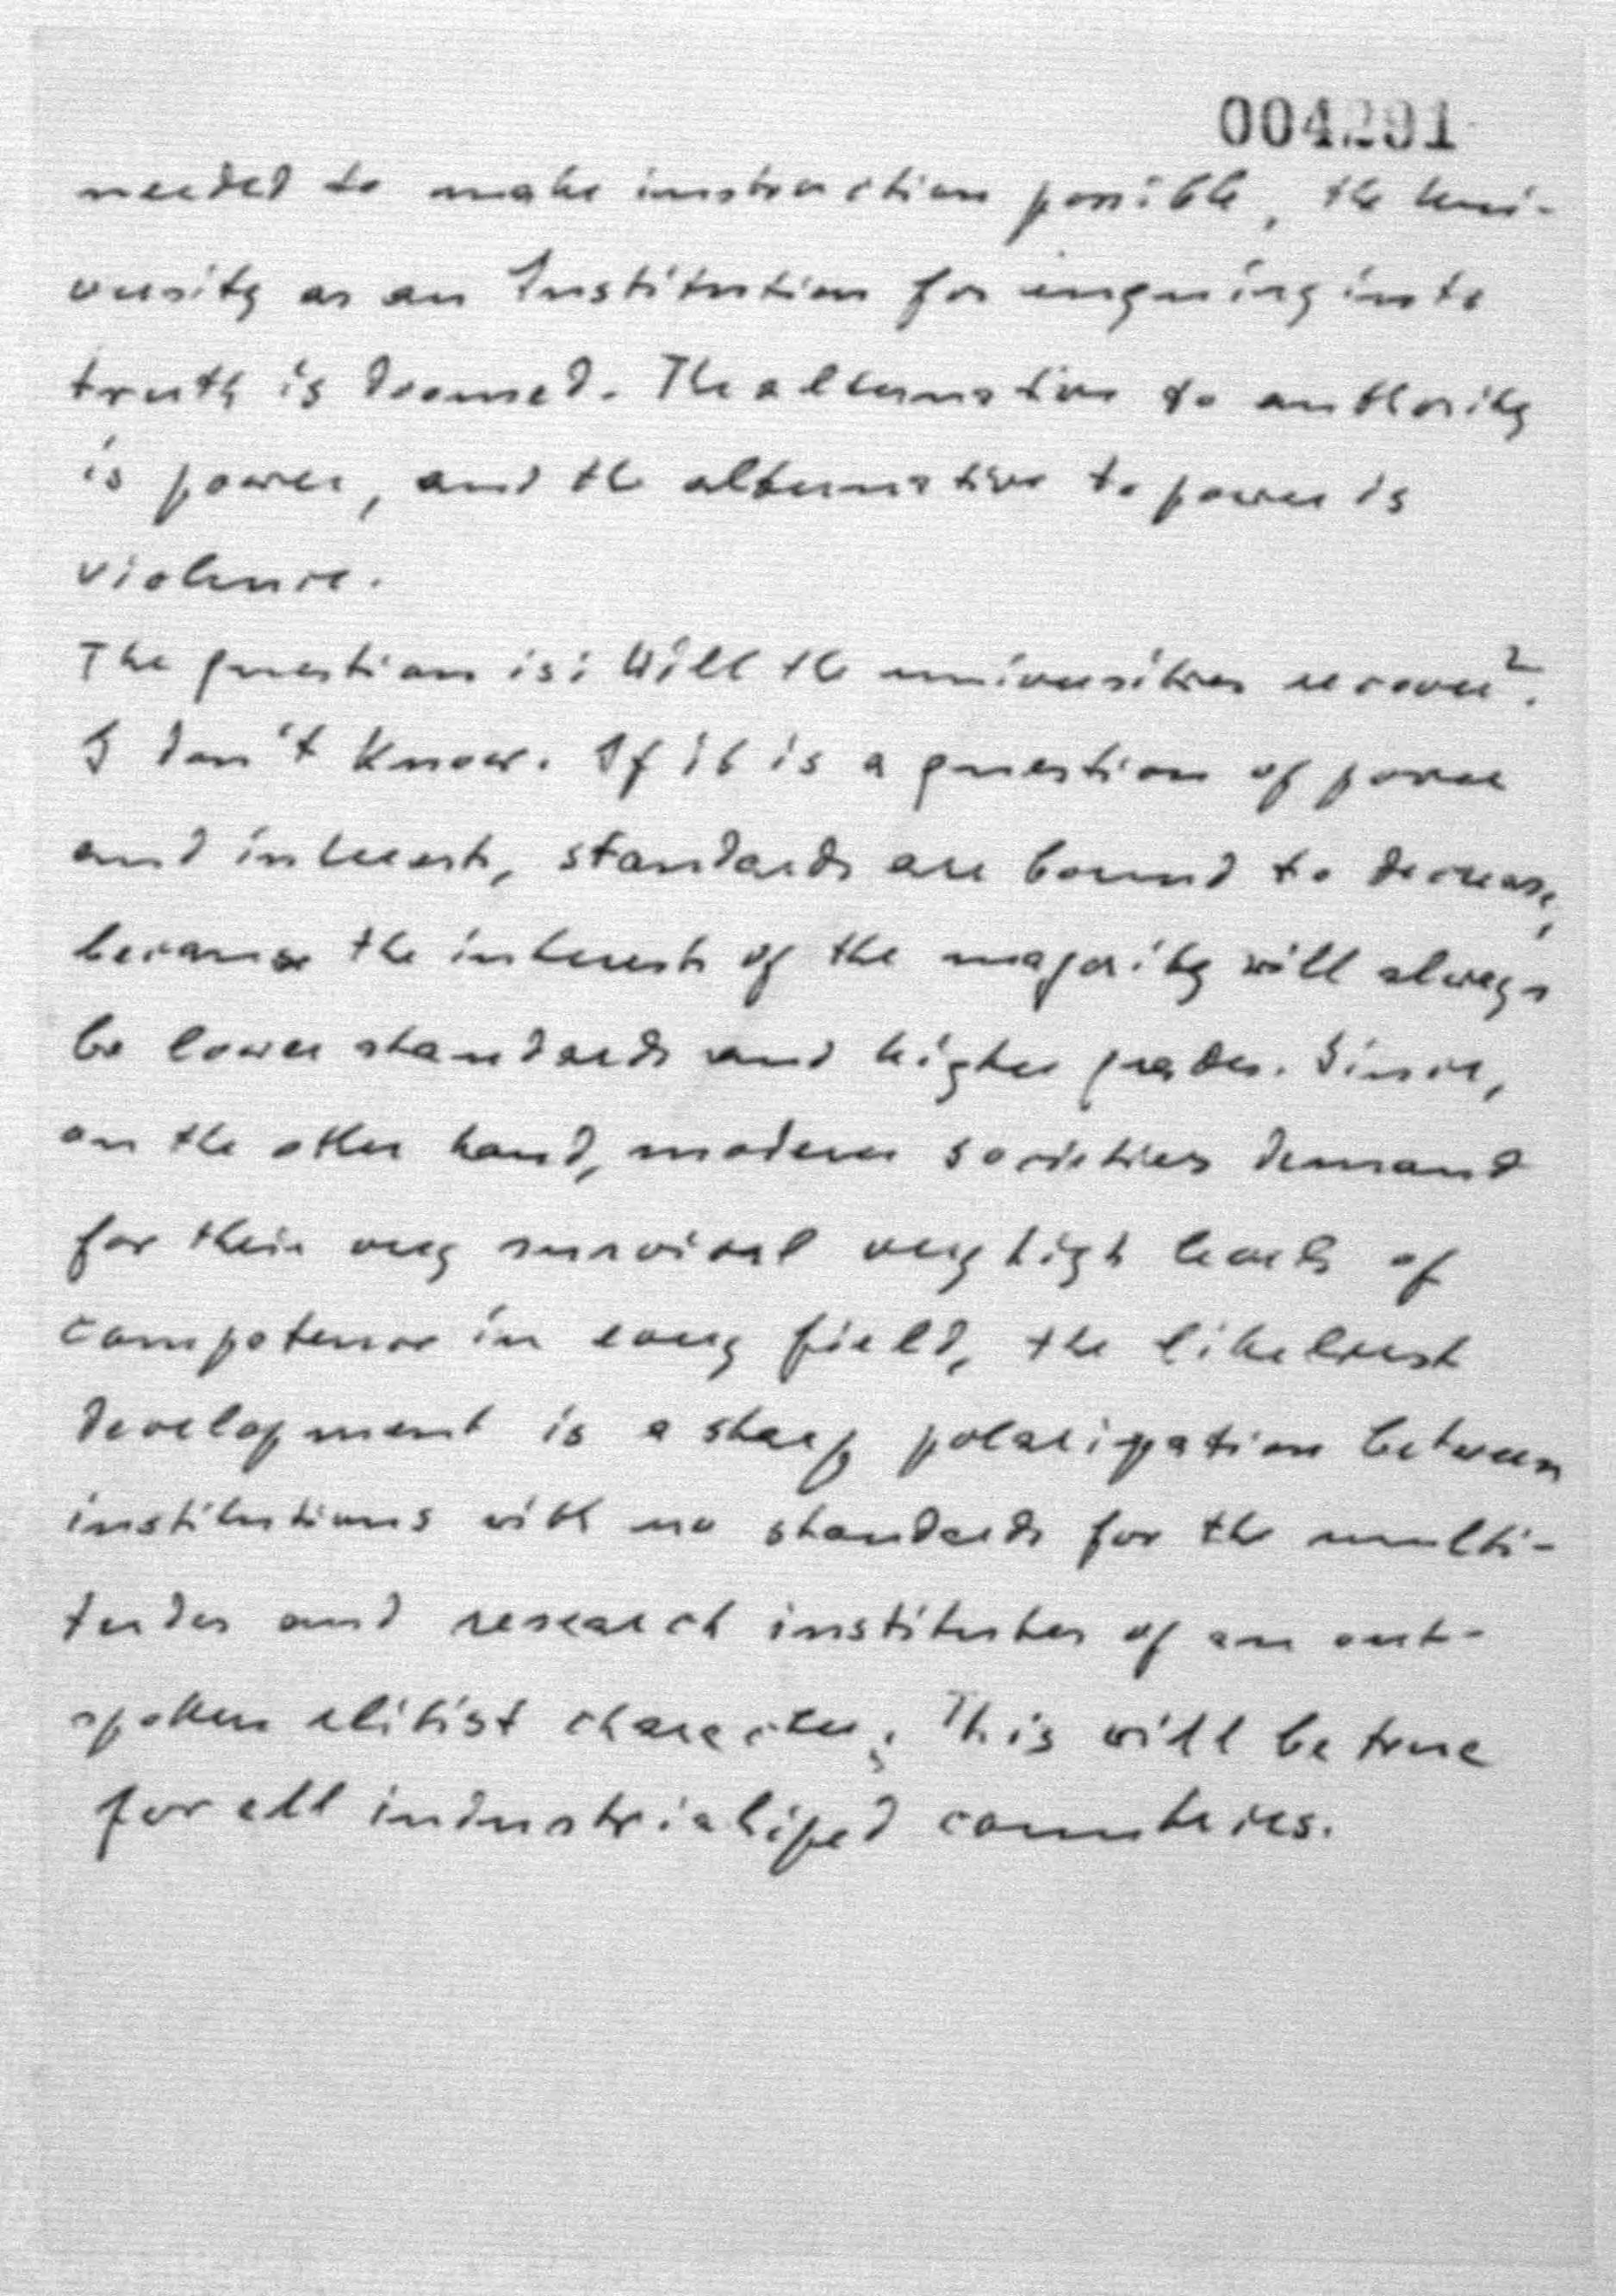 004291
needed to make instruction possible, the Uni-
versity as an Institution for inquiring into
truth is doomed. The alternative to authority
is power, and the alternative to power is
violence.
The question is: Will the universities recover?
I don't know. If it is a question of power
and interests, standards are bound to decrease,
because the interests of the majority will always
be lower standards and higher grades. Since,
on the other hand, modern societies demand
for their very survival very high levels of
competence in every field, the likeliest
development is a sharp polarization between
institutions with no standards for the multi-
tudes and research institutes of an out-
spoken elitist character. This will be true
for all industrialized countries.